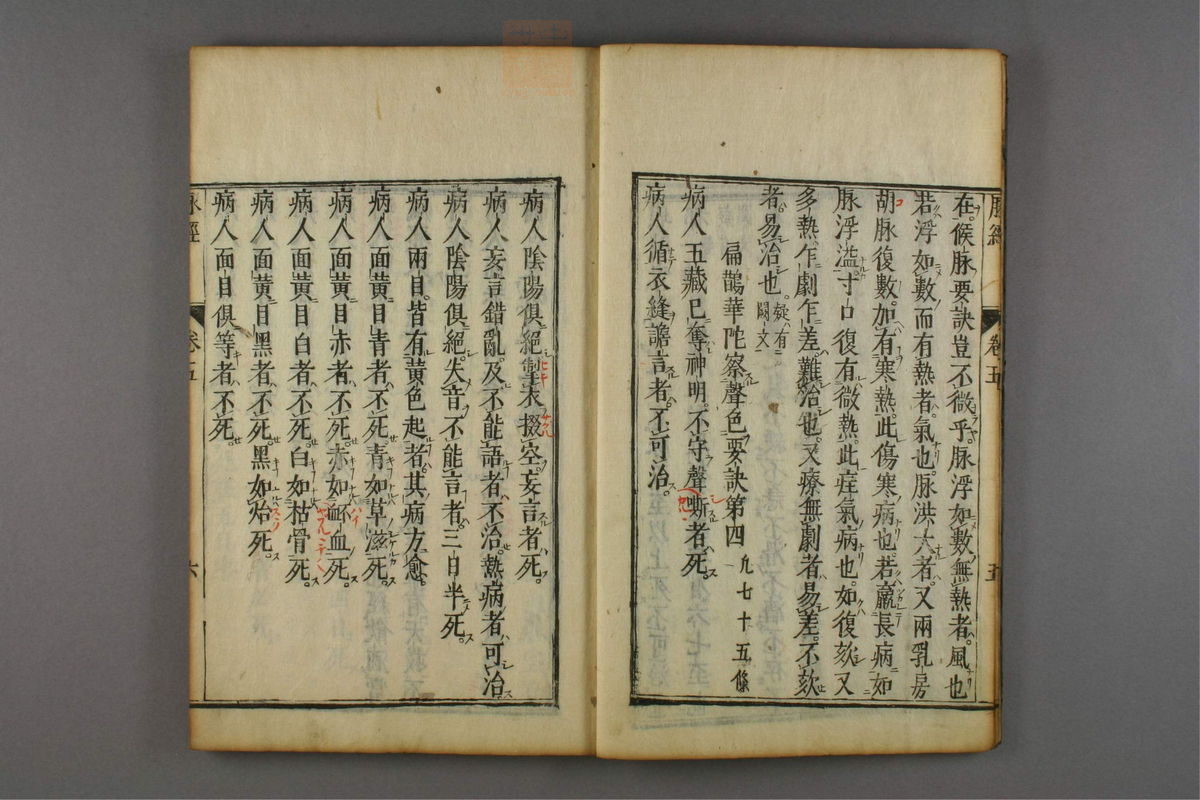 脉經 卷五 五
在。候脉要訣豈不微乎。脉浮如數無熱者。風也
若浮如數而有熱者。氣也。脉洪大者。又兩乳房
胡脉復數。加有寒熱。此傷寒病也。若羸長病如
脉浮溢寸口復有微熱。此疰氣病也。如復欬又
多熱。乍劇乍差。難治也。又療無劇者易差。不欬
者易治也。疑有闕文
扁鵲華陀察聲色要訣第四 九七十五條
病人五藏已奪神明。不守聲嘶者死。
病人循衣縫譫言者。不可治。
病人陰陽俱絕掣衣掇空。妄言者死。
病人妄言錯亂。及不能語者不治。熱病者可治
病人陰陽俱絕。失音不能言者。三日半死。
病人兩目。皆有黃色起者。其病方愈。
病人面黃目青者不死。青如草滋死。
病人面黃目赤者不死。赤如衃血死。
病人面黃目白者不死。白如枯骨死。
病人面黃目黑者不死。黑如炲死。
病人面目俱等者不死。
脉經 卷五 六